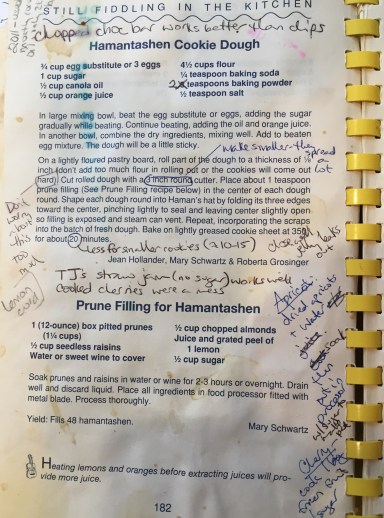 STILL FIDDLING IN THE KITCHEN
chopped choc bar works better than chips
Hamantashen Cookie Dough
¾ cup egg substitute or 3 eggs
1 cup sugar
½ cup canola oil
½ cup orange juice
4½ cups flour
¼ teaspoon baking soda
2 teaspoons baking powder
½ teaspoon salt
In large mixing bowl, beat the egg substitute or eggs, adding the sugar
gradually while beating. Continue beating, adding the oil and orange juice.
In another bowl, combine the dry ingredients, mixing well. Add to beaten
egg mixture. The dough will be a little sticky.
make smaller - they spread a lot
On a lightly floured pastry board, roll part of the dough to a thickness of ⅛
inch (don't add too much flour in rolling out or the cookies will come out
hard). Cut rolled dough with a 3 inch round cutter. Place about 1 teaspoon
prune filling (See Prune Filling recipe below) in the center of each dough
round. Shape each dough round into Haman's hat by folding its three edges
toward the center, pinching lightly to seal and leaving center slightly open
so filling is exposed and steam can vent. Repeat, incorporating the scraps
into the batch of fresh dough. Bake on lightly greased cookie sheet at 350
for about 20 minutes.
less for smaller cookies (~10-15)
Jean Hollander, Mary Schwartz & Roberta Grosinger
Don't worry about this too much
TJ's straw jam (no sugar) works well
cooked cherries were a mess
Prune Filling for Hamantashen
1 (12-ounce) box pitted prunes
(1¼ cups)
½ cup seedless raisins
Water or sweet wine to cover
½ cup chopped almonds
Juice and grated peel of
1 lemon
½ cup sugar
Soak prunes and raisins in water or wine for 2-3 hours or overnight. Drain
well and discard liquid. Place all ingredients in food processor fitted with
metal blade. Process thoroughly.
Yield: Fills 48 hamantashen.
Mary Schwartz
Apricot:
dried apricots
+ water
Heating lemons and oranges before extracting juices will pro-
vide more juice.
182